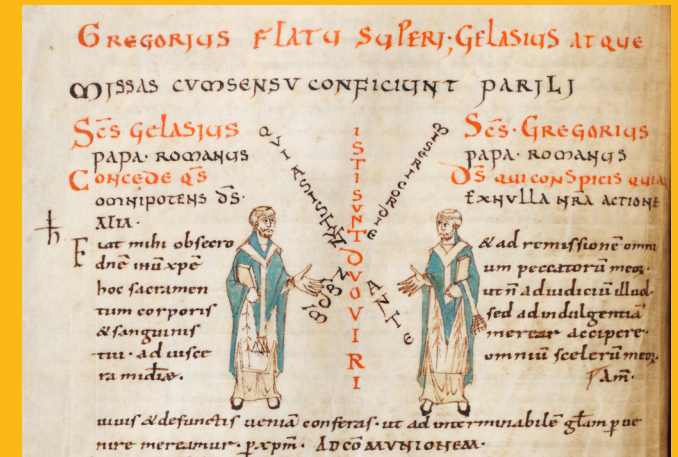 GREGORIUS FLATU SUPERI; GELASIUS ATQUE
MISSAS CUM SENSU CONFICIUNT PARILI
Scs GELASIUS
PAPA· ROMANUS
CONCEDE QS
OMNIPOTENS DS·
ALIA·
Fiat mihi obsecro
dne ihu xpe
hoc sacramen
tum corporis
& sanguinis
tui· ad uisce
ISTI SUNT DUO VIRI
ANTE
Scs· GREGORIUS
PAPA· ROMANUS
DS QUI CONSPICIS QUIA
EX NULLA NRA ACTIONE
& ad remissione omni
um peccatoru meoꝝ·
ut n ad iudiciu illud·
sed ad indulgentia
merear accipere·
omniu sceleru meoꝝ·
Am·
uiuis & defunctis uenia conferas· ut ad interminabile glam p ue
nire mereamur· p xpm· AD COMMUNIONEM·